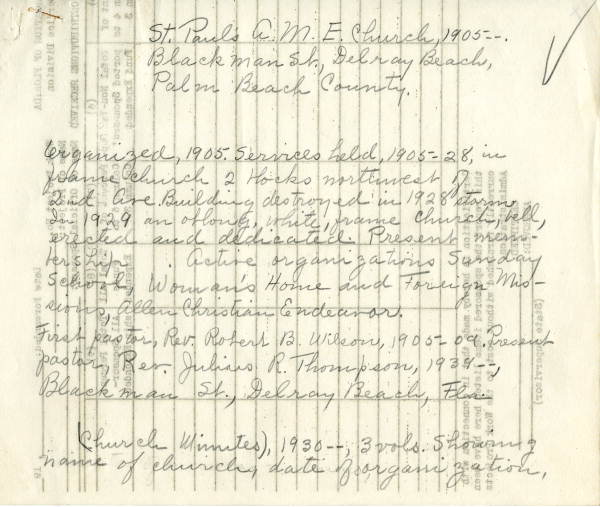 St. Pauls A. M. E. Church, 1905--.
Blackman St., Delray Beach,
Palm Beach County.
Organized, 1905. Services held, 1905-28, in
frame church 2 blocks northwest of
2nd Ave. Building destroyed in 1928 storm.
In 1929 an oblong, white, frame church, bell,
erected and dedicated. Present mem-
bership . Active organizations Sunday
School, Woman's Home and Foreign Mis-
sions, Allen Christian Endeavor.
First pastor, Rev. Robert B. Wilson, 1905-09. Present
pastor, Rev. Julius R. Thompson, 1939--,
Blackman St., Delray Beach, Fla.
(Church Minutes), 1930--, 3 vols. Showing
name of church, date of organization,